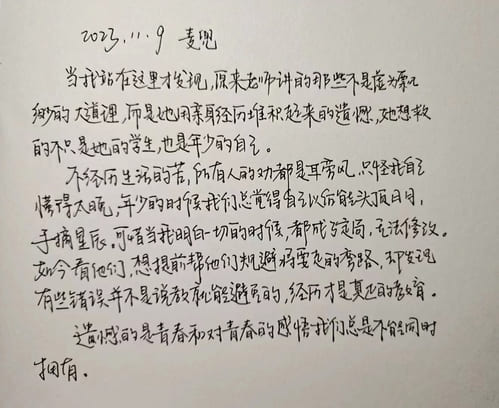 2023.11.9 麦兜
当我站在这里才发现,原来老师讲的那些不是虚无飘
缈的大道理,而是她用亲身经历堆积起来的遗憾,她想救
的不只是她的学生,也是年少的自己。
不经历生活的苦,所有人的劝都是耳旁风,只怪我自己
懂得太晚,年少的时候我们总觉得自己以后能头顶日月,
手摘星辰,可惜当我明白一切的时候,都成了定局,无法修改。
如今看他们,想提前帮他们规避将要走的弯路,却发现
有些错误并不是说教就能避免的,经历才是真正的教育。
遗憾的是青春和对青春的感悟我们总是不能同时
拥有。